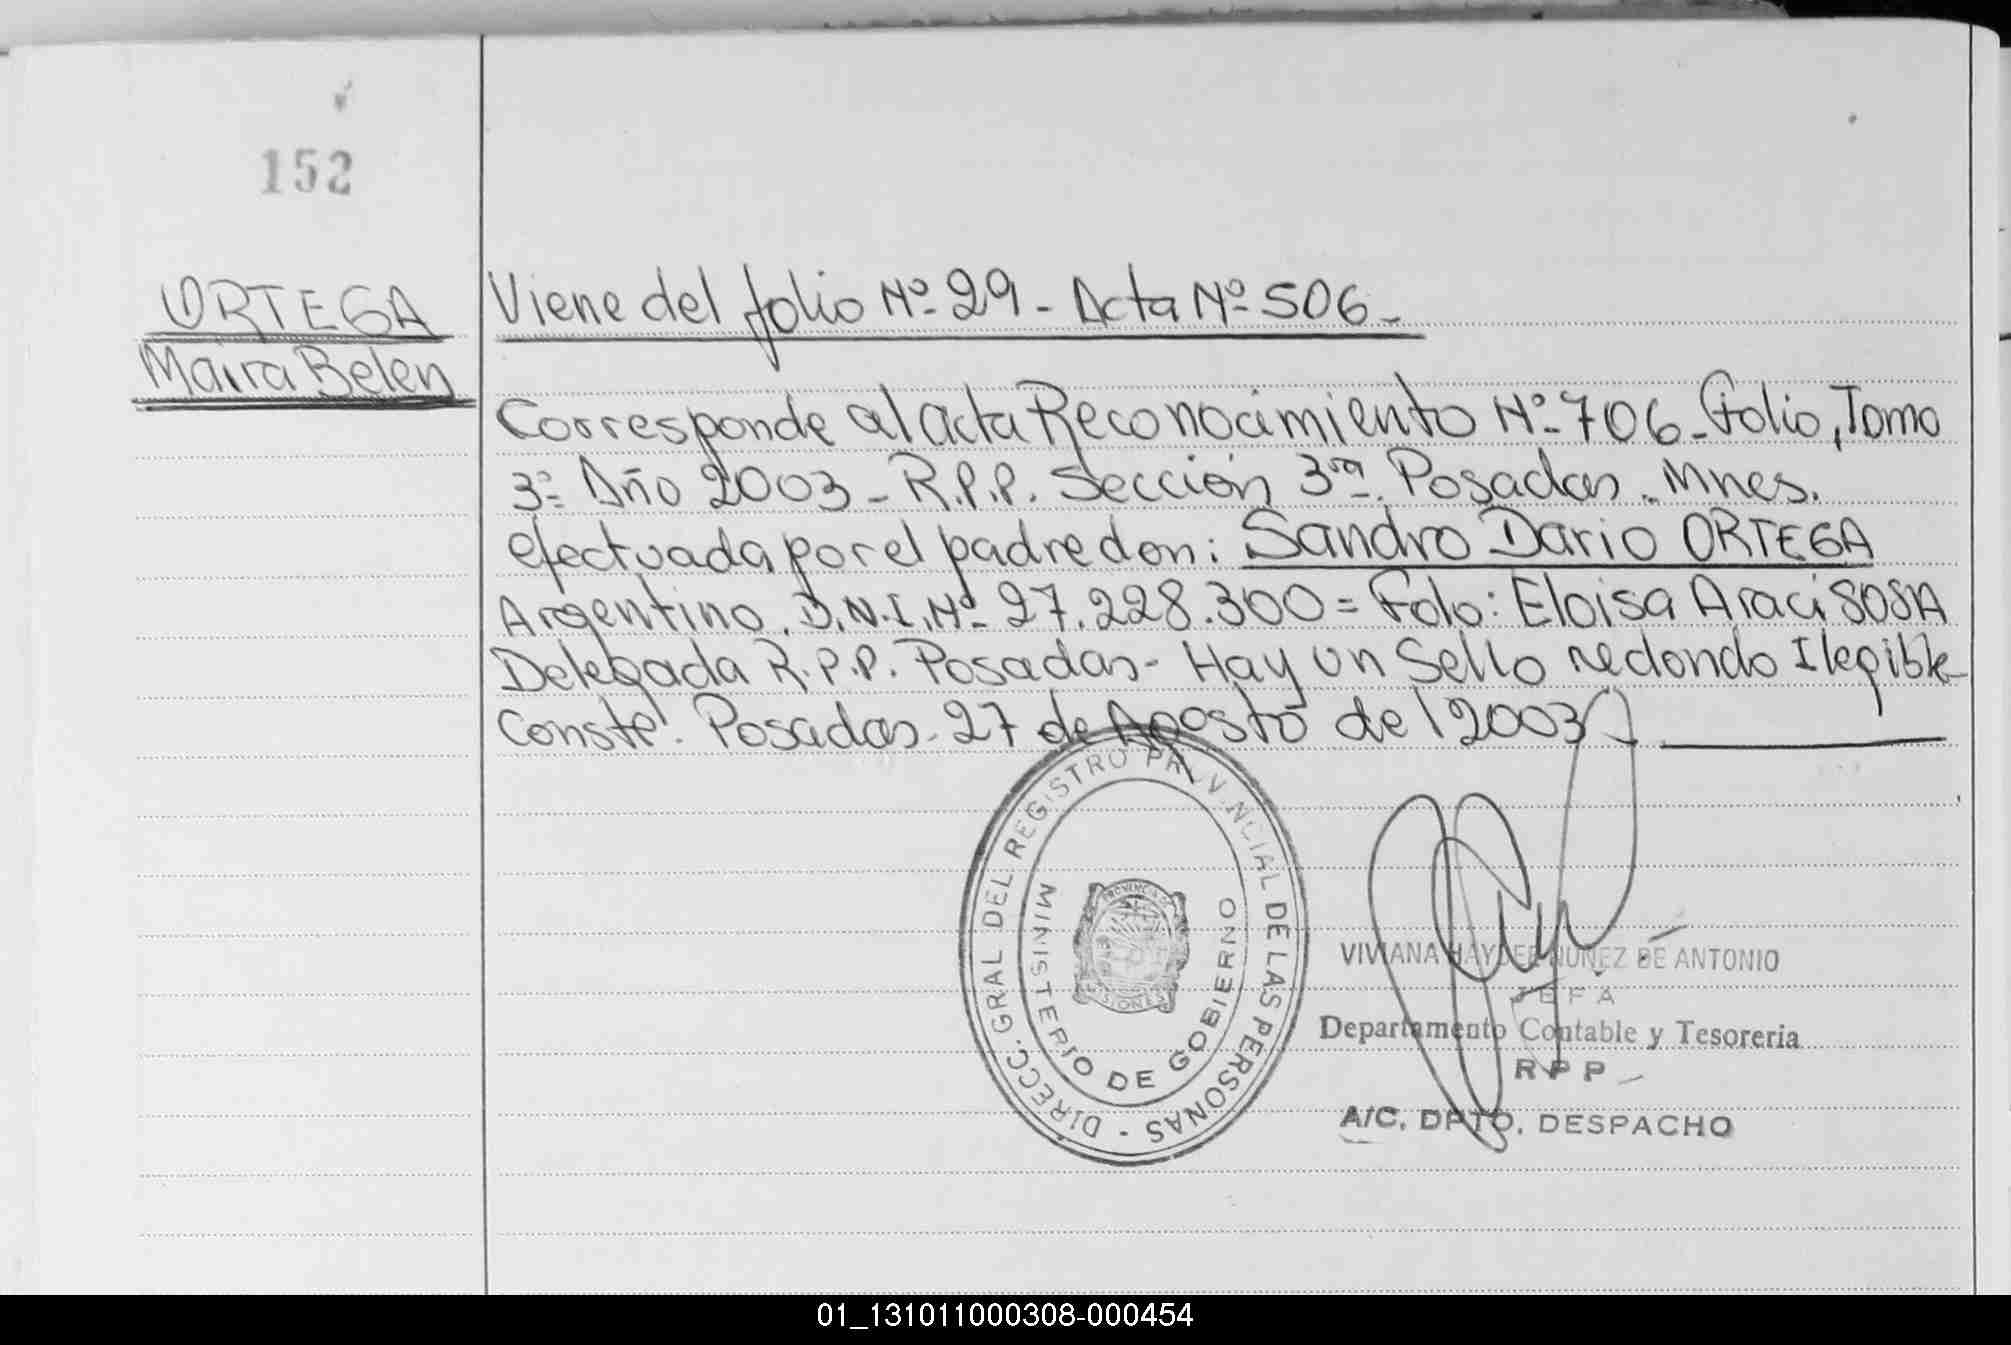 152
ORTEGA
Maira Belen
Viene del folio Nº 29 - Acta Nº 506 -
Corresponde al acta Reconocimiento Nº 706 - folio, Tomo
3º Año 2003 - R.P.P. Sección 3ra. Posadas - Mnes.
efectuada por el padre don: Sandro Dario ORTEGA
Argentino, D.N.I. Nº 27.228.300 = Fdo: Eloisa Araci SOSA
Delegada R.P.P. Posadas - Hay un Sello redondo Ilegible -
Conste! Posadas - 27 de Agosto del 2003
DIRECC. GRAL DEL REGISTRO PROVINCIAL DE LAS PERSONAS -
MINISTERIO DE GOBIERNO
PROVINCIA DE
MISIONES
VIVIANA HAYDEE NUÑEZ DE ANTONIO
JEFA
Departamento Contable y Tesoreria
R P P
A/C. DPTO. DESPACHO
01_131011000308-000454